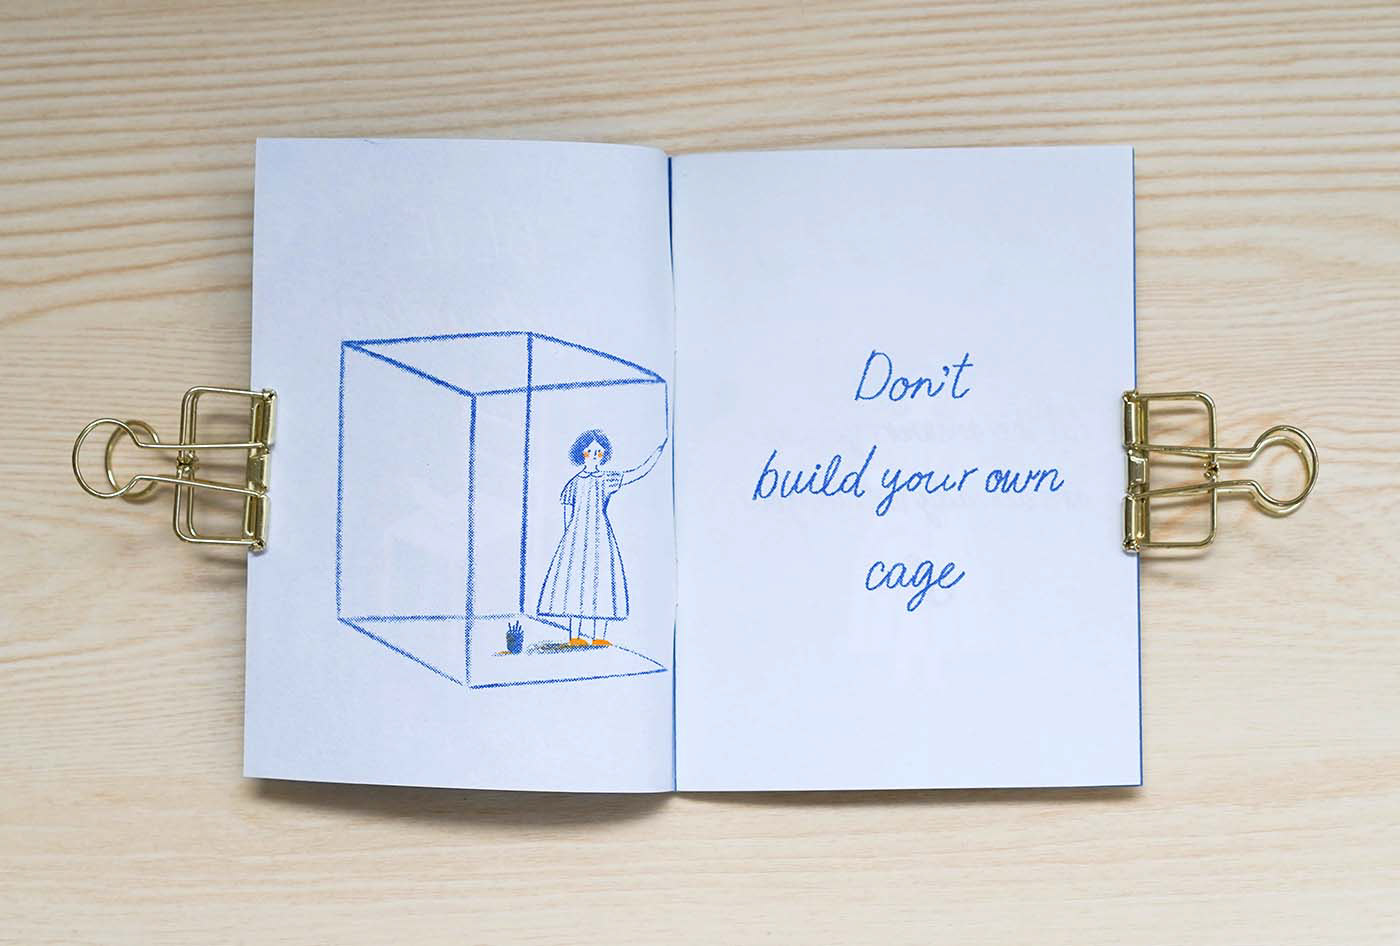 Don't
build your own
cage